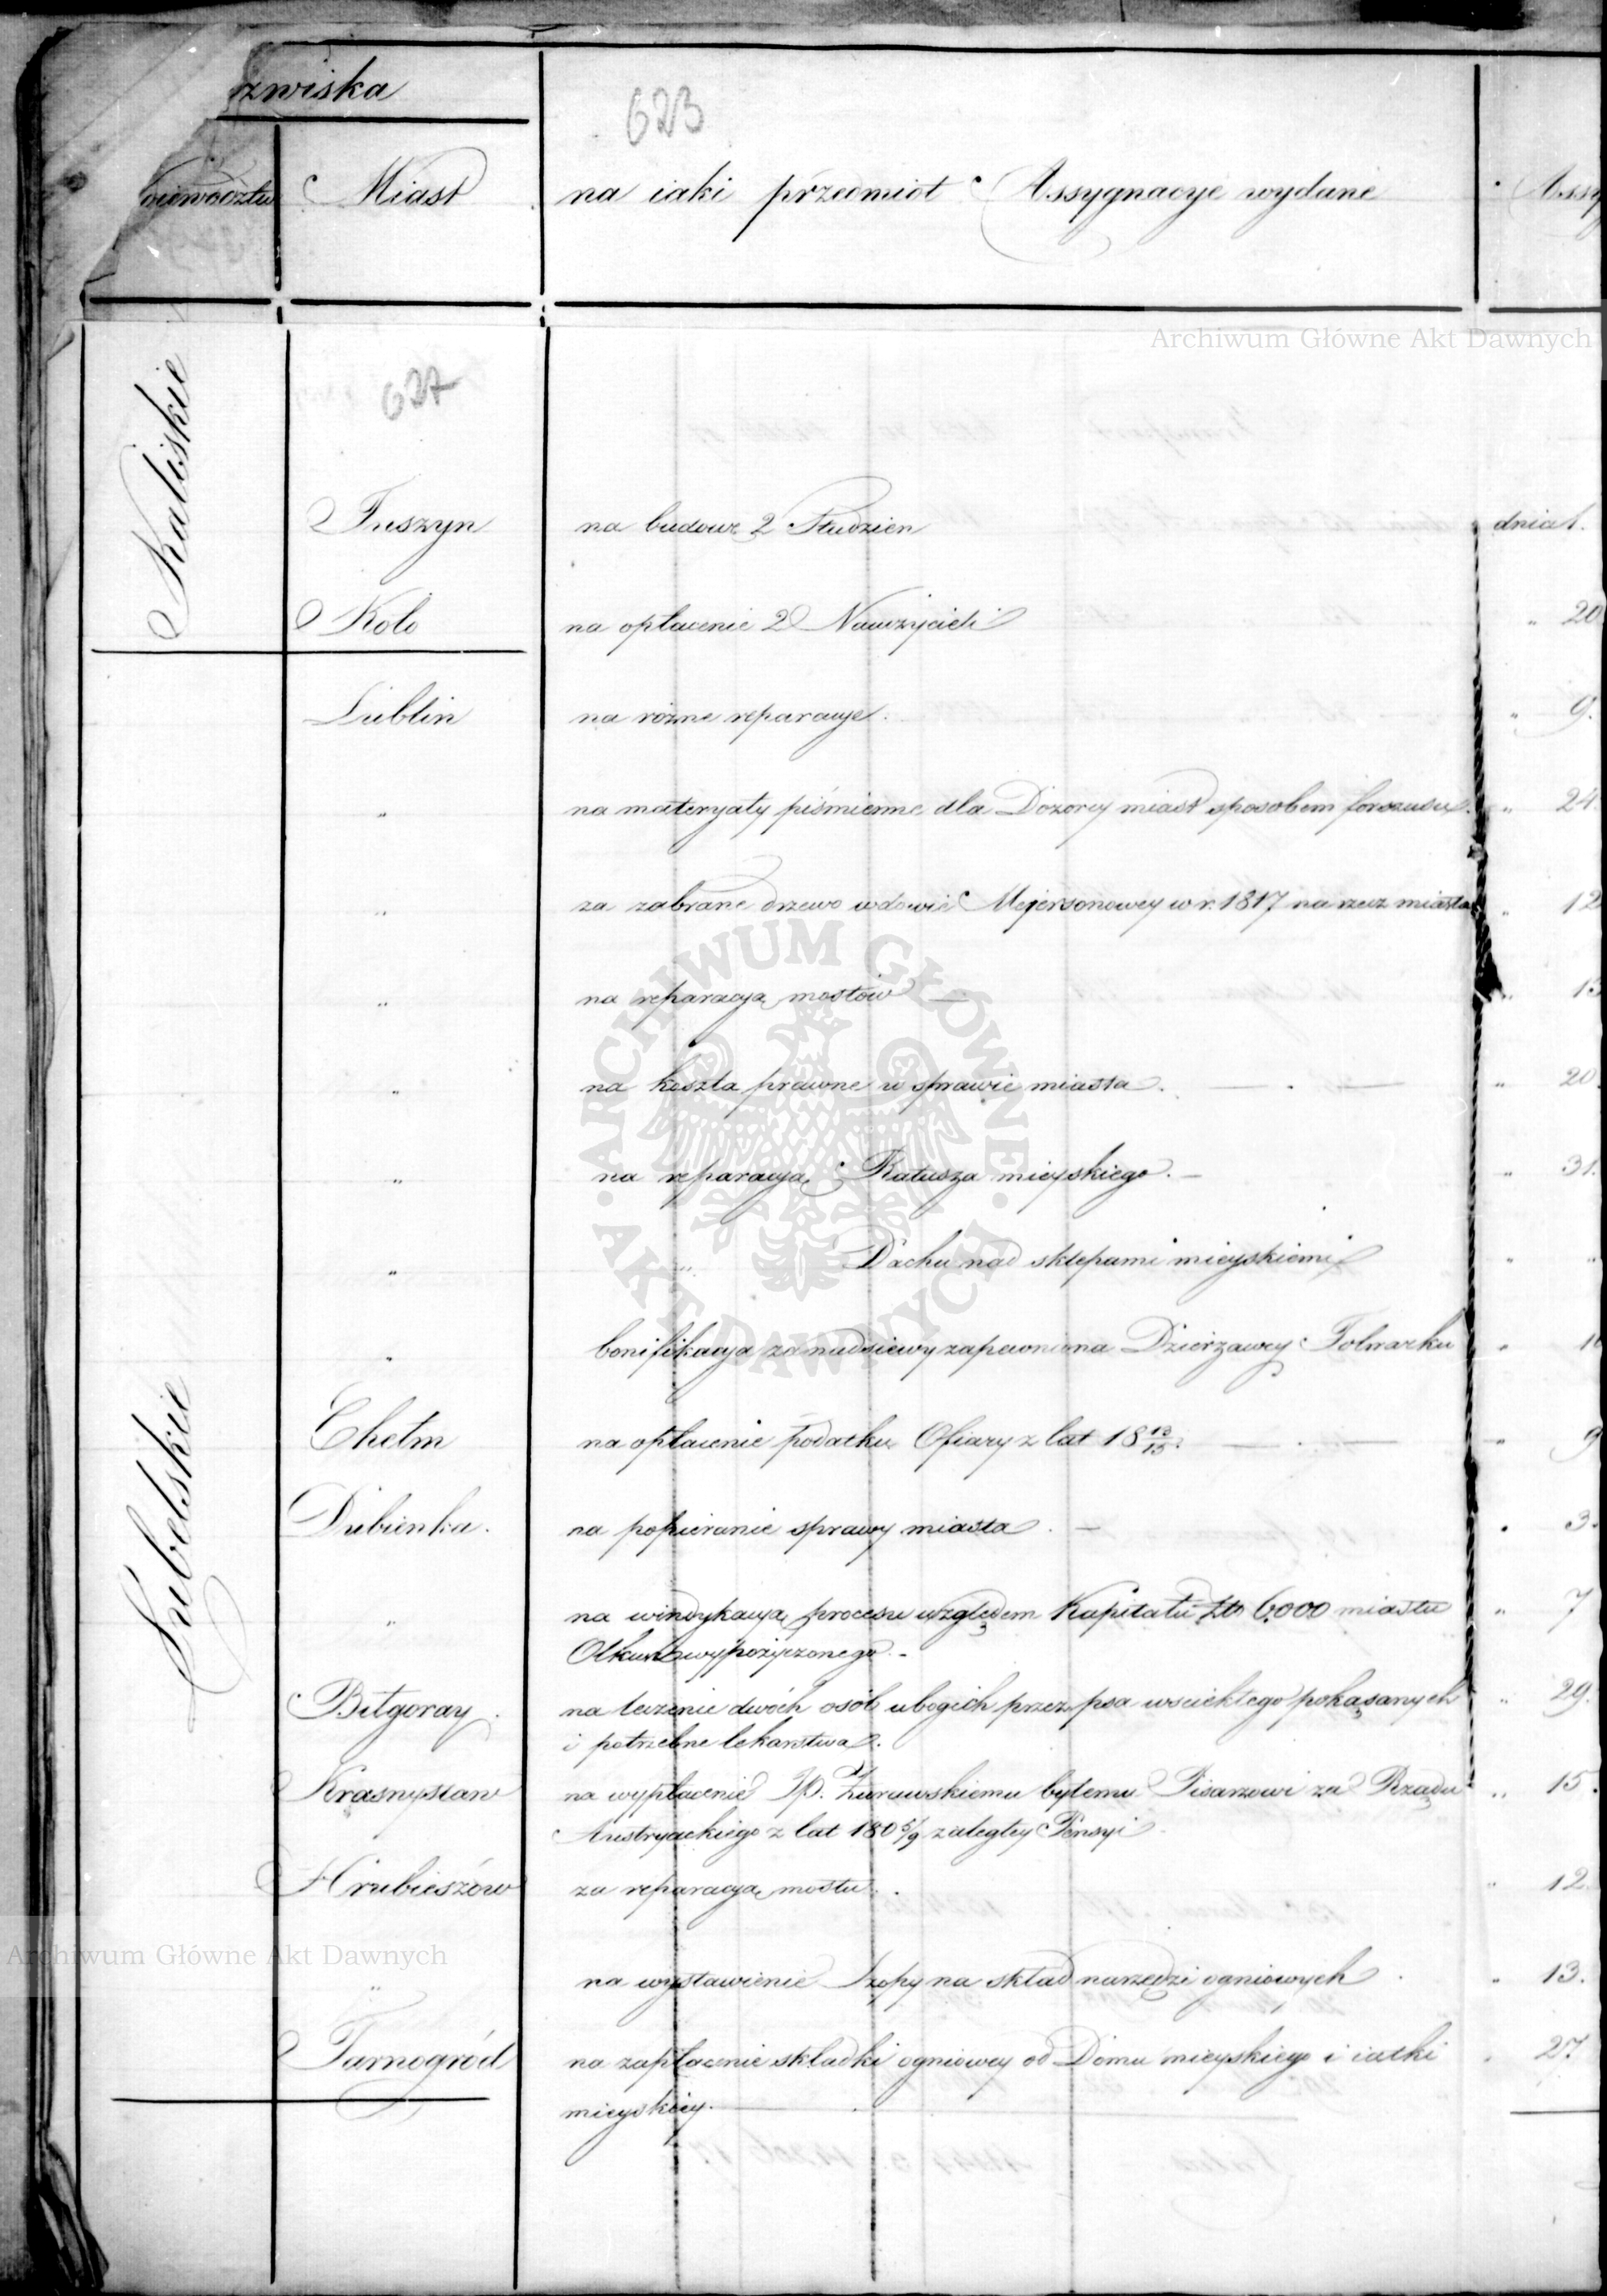 zwiska
623
Miast na iaki przedmiot Assygnacye wydane Assy
Archiwum Główne Akt Dawnych
Kaliskie
627
Tuszyn na budowę 2 Studzien dnia 1.
Koło na opłacenie 2 Nauczycieli " 20
Lublin na różne reparacye. " 9.
" na materyały piśmienne dla Dozorcy miast sposobem forszusu. " 24
" za zabrane drzewo wdowie Mejersonowey w r. 1817 na rzecz miasta " 12
" na reparacyą mostów — " 13
" na koszta prawne w sprawie miasta. — " 20.
" na reparacyą Ratusza mieyskiego. — " 31.
" " Dachu nad sklepami mieyskiemi " "
" bonifikacya za nadsiewy zapewniona Dzierżawcy Folwarku " 1
Lubelskie
Chełm na opłacenie podatku Ofiary z lat 18 13/15. — " 9
Dubienka. na popieranie sprawy miasta. — " 3.
" na windykacyą procesu względem Kapitału Złt 6,000 miastu " 7
Olkusz wypożyczonego. -
Biłgoray. na leczenie dwóch osób ubogich przez psa wsciekłego pokąsanych " 29.
i potrzebne lekarstwa.
Krasnystaw na wypłacenie Jp. Żurawskiemu byłemu Pisarzowi za Rządu " 15.
Austryackiego z lat 180 5/9 zaległey Pensyi
Hrubieszów za reparacyą mostu. " 12.
Archiwum Główne Akt Dawnych
" na wystawienie Szopy na skład narzędzi ogniowych. " 13.
Tarnogród na zapłacenie składki ogniowey od Domu mieyskiego i iatki " 27.
mieyskiey.
ARCHIWUM GŁÓWNE · AKT DAWNYCH ·